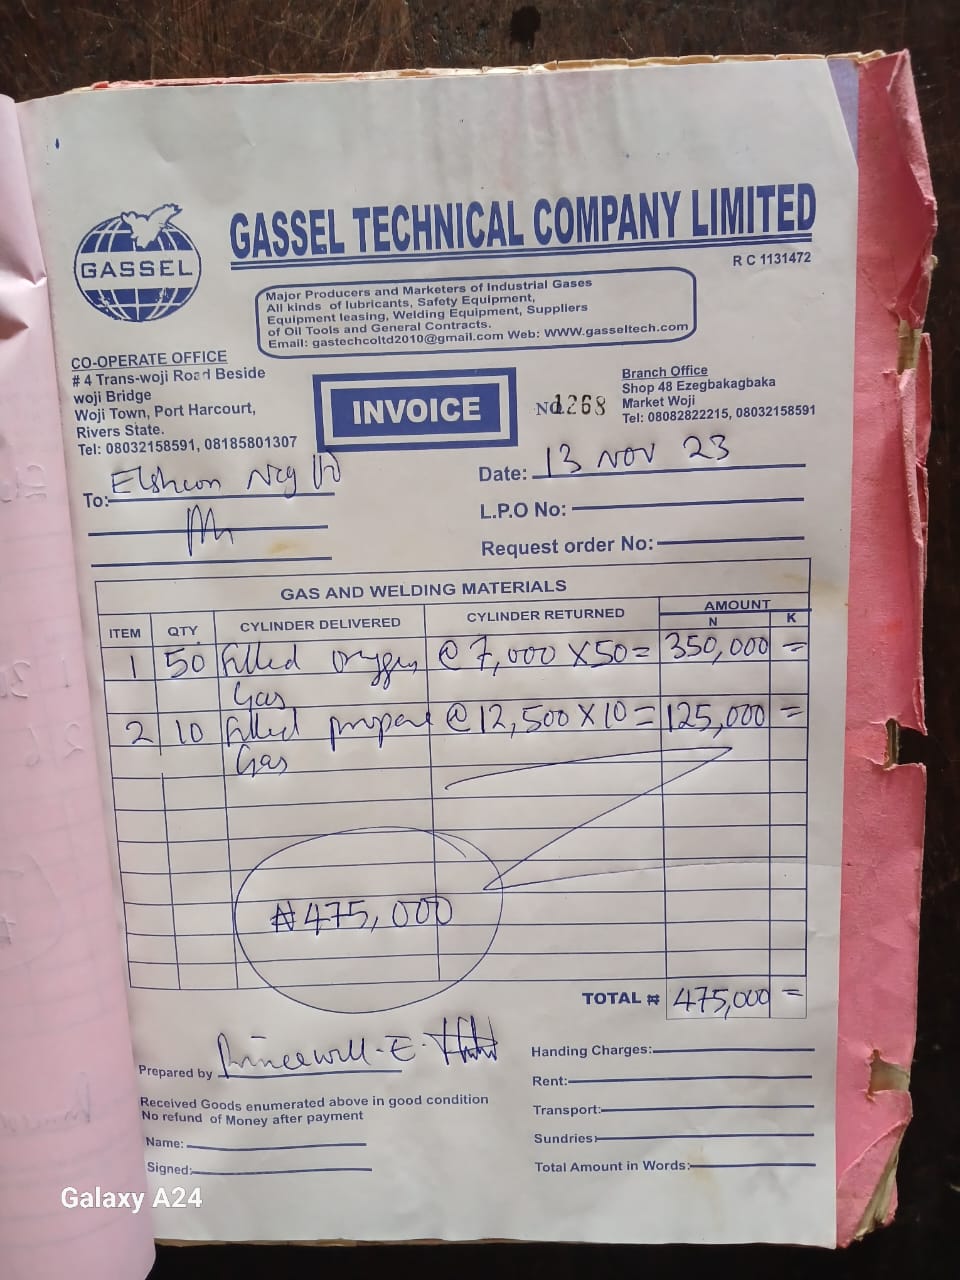 GASSEL
GASSEL TECHNICAL COMPANY LIMITED
R C 1131472
Major Producers and Marketers of Industrial Gases
All kinds of lubricants, Safety Equipment,
Equipment leasing, Welding Equipment, Suppliers
of Oil Tools and General Contracts.
Email: gastechcoltd2010@gmail.com Web: WWW.gasseltech.com
CO-OPERATE OFFICE
# 4 Trans-woji Road Beside
woji Bridge
Woji Town, Port Harcourt,
Rivers State.
Tel: 08032158591, 08185801307
INVOICE
No 1268
Branch Office
Shop 48 Ezegbakagbaka
Market Woji
Tel: 08082822215, 08032158591
To:
Date: 13 NOV 23
L.P.O No:
Request order No:
GAS AND WELDING MATERIALS
ITEM QTY. CYLINDER DELIVERED CYLINDER RETURNED AMOUNT
N K
1 50 filled oxygen @ 7,000 X 50 = 350,000 =
Gas
2 10 filled propane @ 12,500 X 10 = 125,000 =
Gas
₦475,000
TOTAL ₦ 475,000 =
Prepared by Princewill. E.
Received Goods enumerated above in good condition
No refund of Money after payment
Name:
Signed:
Handing Charges:
Rent:
Transport:
Sundries:
Total Amount in Words:
Galaxy A24